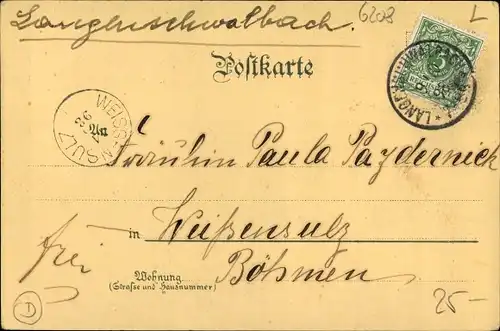 Langenschwalbach.
6208
L
Postkarte
LANGENSCHWALBACH
5
WEISSENSULZ
An
Fräulein Paula Payderneck
in Weißensulz
frei
Böhmen
Wohnung
(Strasse und Hausnummer)
25-
D